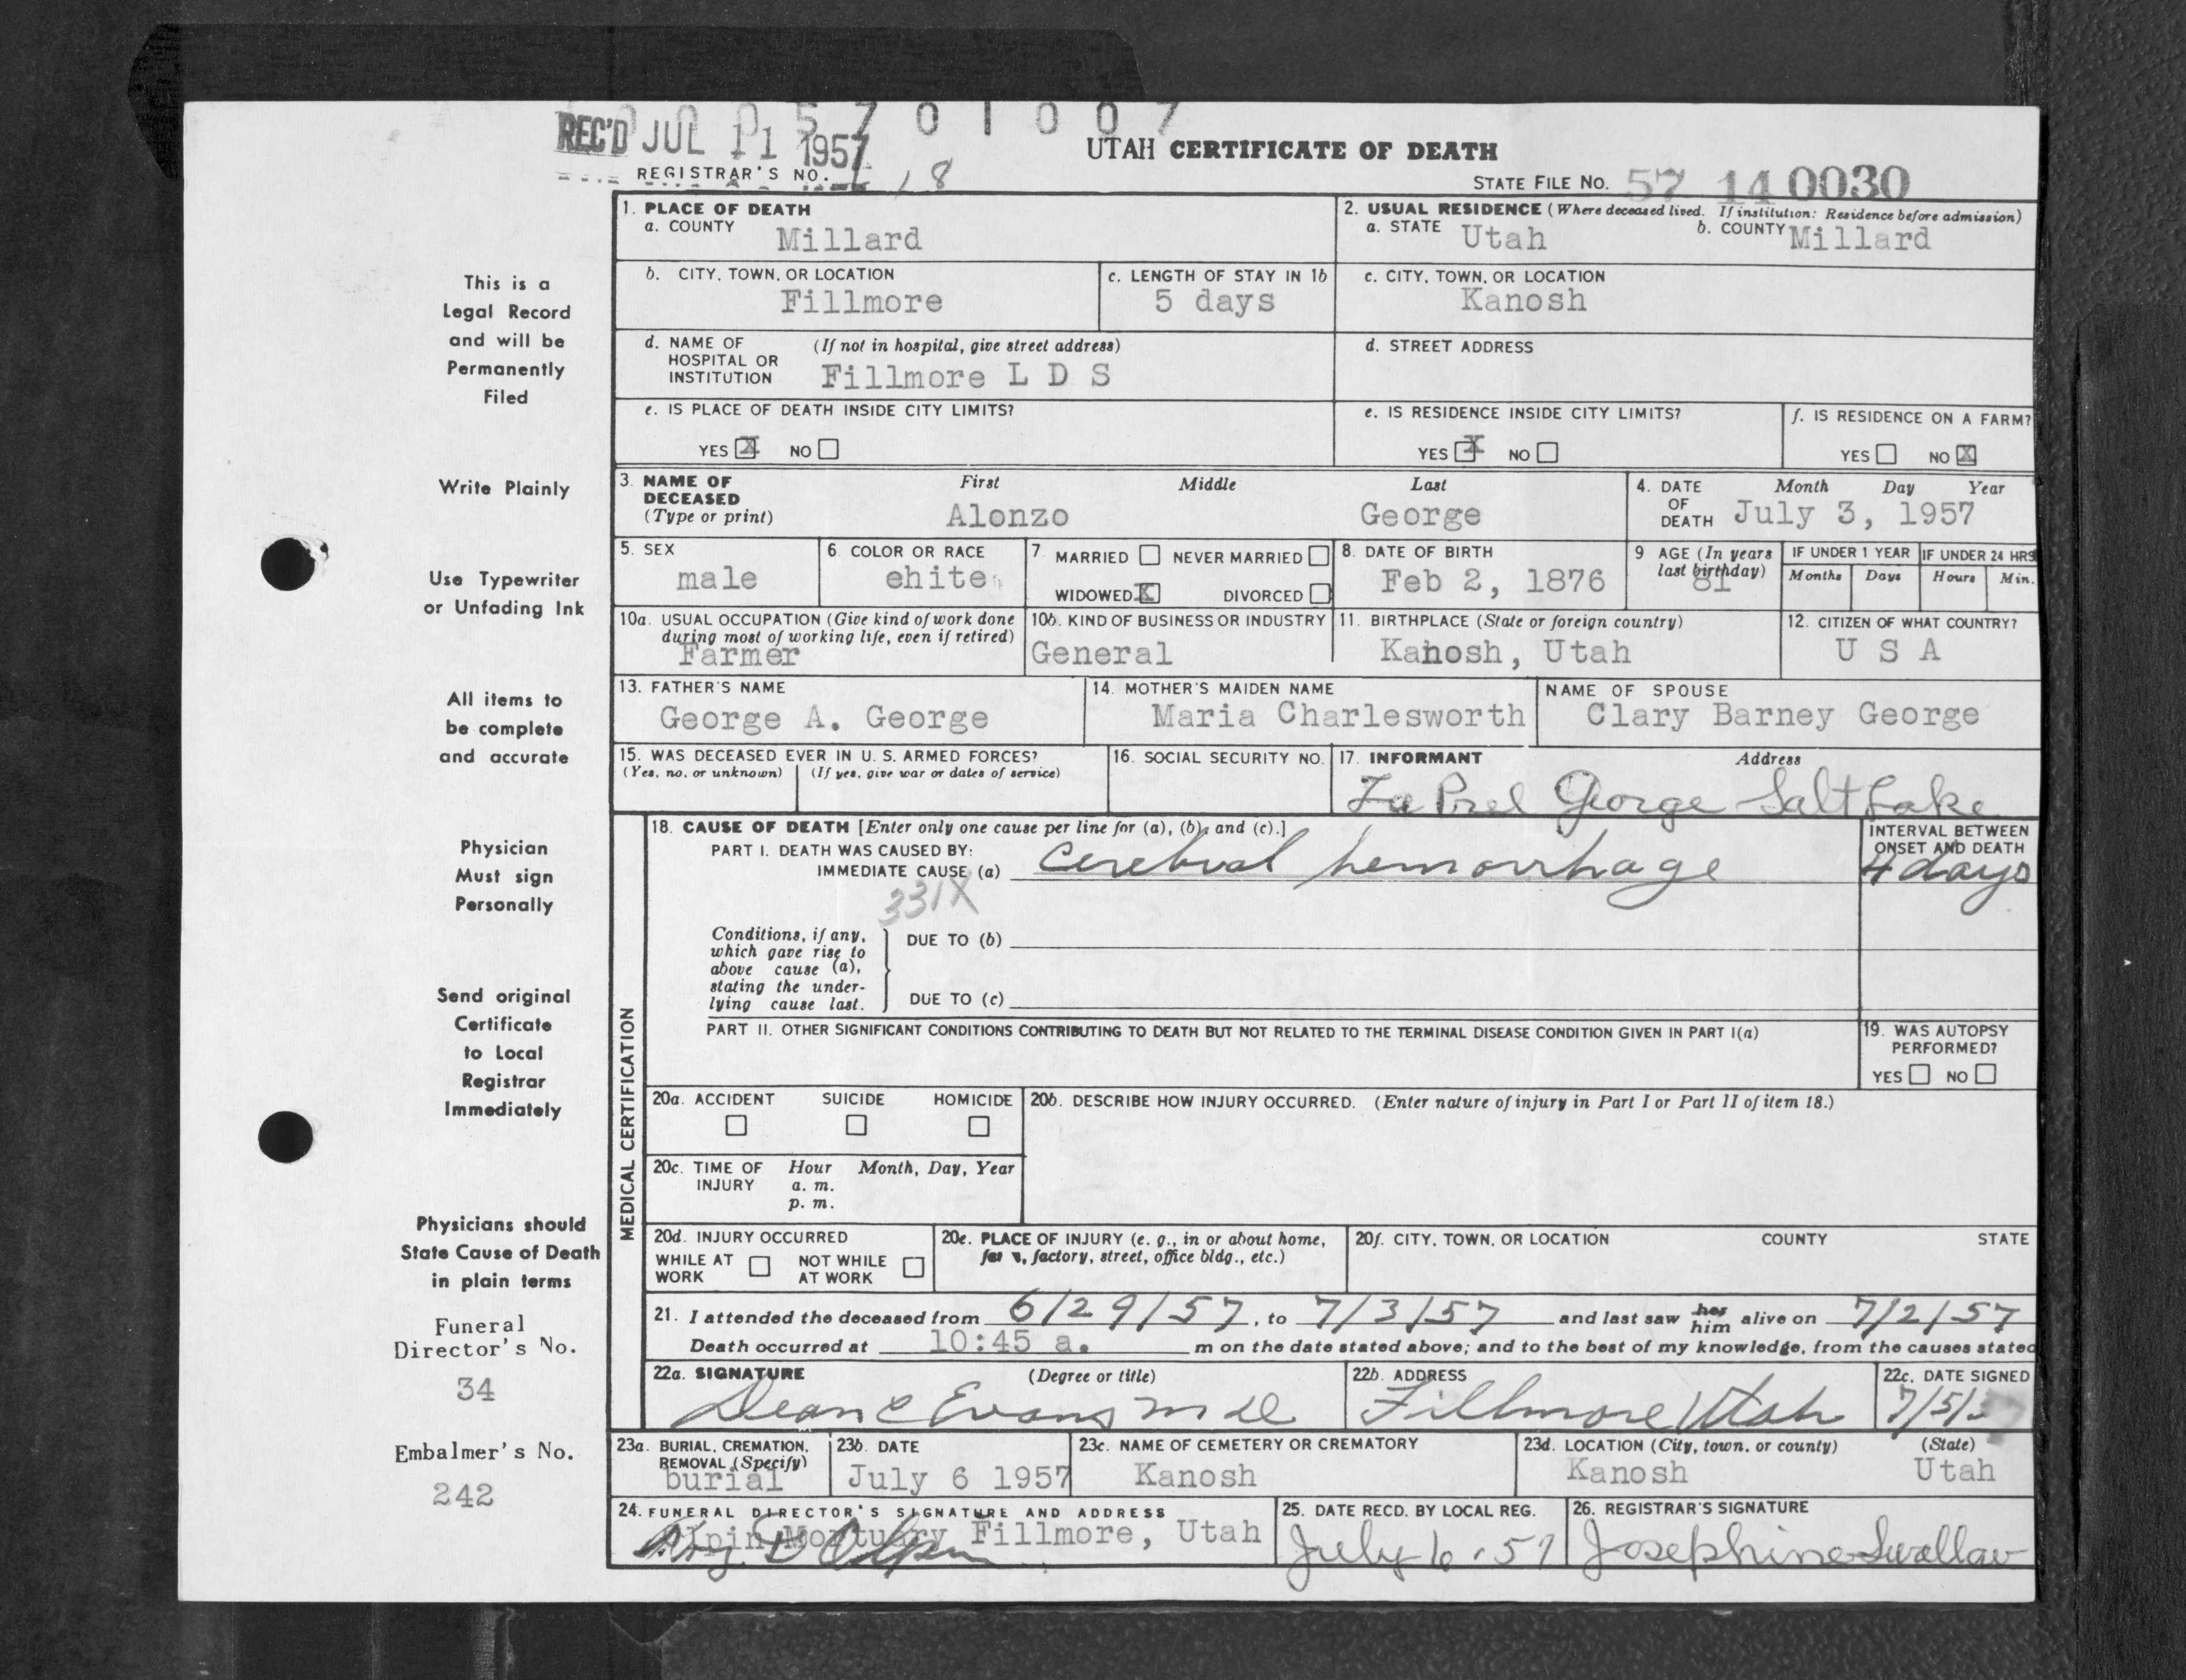 0 0 0 5 7 0 1 0 0 7
REC'D JUL 11 1957
UTAH CERTIFICATE OF DEATH
REGISTRAR'S NO. 18
STATE FILE NO. 57 14 0030
1. PLACE OF DEATH
a. COUNTY Millard
2. USUAL RESIDENCE (Where deceased lived. If institution: Residence before admission)
a. STATE Utah b. COUNTY Millard
b. CITY, TOWN, OR LOCATION Fillmore
c. LENGTH OF STAY IN 1b 5 days
c. CITY, TOWN, OR LOCATION Kanosh
d. NAME OF HOSPITAL OR INSTITUTION (If not in hospital, give street address) Fillmore L D S
d. STREET ADDRESS
e. IS PLACE OF DEATH INSIDE CITY LIMITS?
YES X NO
e. IS RESIDENCE INSIDE CITY LIMITS?
YES X NO
f. IS RESIDENCE ON A FARM?
YES NO X
3. NAME OF DECEASED (Type or print)
First Middle Last
Alonzo George
4. DATE OF DEATH Month Day Year
July 3, 1957
5. SEX male
6. COLOR OR RACE ehite
7. MARRIED NEVER MARRIED
WIDOWED X DIVORCED
8. DATE OF BIRTH Feb 2, 1876
9 AGE (In years last birthday) 81
IF UNDER 1 YEAR Months Days
IF UNDER 24 HRS Hours Min.
10a. USUAL OCCUPATION (Give kind of work done during most of working life, even if retired)
Farmer
10b. KIND OF BUSINESS OR INDUSTRY
General
11. BIRTHPLACE (State or foreign country)
Kanosh, Utah
12. CITIZEN OF WHAT COUNTRY?
U S A
13. FATHER'S NAME
George A. George
14. MOTHER'S MAIDEN NAME
Maria Charlesworth
NAME OF SPOUSE
Clary Barney George
15. WAS DECEASED EVER IN U. S. ARMED FORCES?
(Yes, no, or unknown) (If yes, give war or dates of service)
16. SOCIAL SECURITY NO.
17. INFORMANT Address
George Salt Lake
18. CAUSE OF DEATH [Enter only one cause per line for (a), (b), and (c).]
PART I. DEATH WAS CAUSED BY:
IMMEDIATE CAUSE (a) Cerebral hemorrhage
INTERVAL BETWEEN ONSET AND DEATH
4 days
331X
Conditions, if any, which gave rise to above cause (a), stating the underlying cause last.
DUE TO (b)
DUE TO (c)
PART II. OTHER SIGNIFICANT CONDITIONS CONTRIBUTING TO DEATH BUT NOT RELATED TO THE TERMINAL DISEASE CONDITION GIVEN IN PART I(a)
19. WAS AUTOPSY PERFORMED?
YES NO
MEDICAL CERTIFICATION
20a. ACCIDENT SUICIDE HOMICIDE
20b. DESCRIBE HOW INJURY OCCURRED. (Enter nature of injury in Part I or Part II of item 18.)
20c. TIME OF INJURY Hour Month, Day, Year
a. m.
p. m.
20d. INJURY OCCURRED
WHILE AT WORK NOT WHILE AT WORK
20e. PLACE OF INJURY (e. g., in or about home, farm, factory, street, office bldg., etc.)
20f. CITY, TOWN, OR LOCATION COUNTY STATE
21. I attended the deceased from 6/29/57, to 7/3/57 and last saw her him alive on 7/2/57
Death occurred at 10:45 a. m on the date stated above; and to the best of my knowledge, from the causes stated
22a. SIGNATURE (Degree or title)
Dean C Evans MD
22b. ADDRESS
Fillmore Utah
22c. DATE SIGNED
7/5/57
23a. BURIAL, CREMATION, REMOVAL (Specify)
burial
23b. DATE
July 6 1957
23c. NAME OF CEMETERY OR CREMATORY
Kanosh
23d. LOCATION (City, town, or county) (State)
Kanosh Utah
24. FUNERAL DIRECTOR'S SIGNATURE AND ADDRESS
Olpin Mortuary Fillmore, Utah
D Olpin
25. DATE RECD. BY LOCAL REG.
July 6 - 57
26. REGISTRAR'S SIGNATURE
Josephine Swallow
This is a
Legal Record
and will be
Permanently
Filed
Write Plainly
Use Typewriter
or Unfading Ink
All items to
be complete
and accurate
Physician
Must sign
Personally
Send original
Certificate
to Local
Registrar
Immediately
Physicians should
State Cause of Death
in plain terms
Funeral
Director's No.
34
Embalmer's No.
242